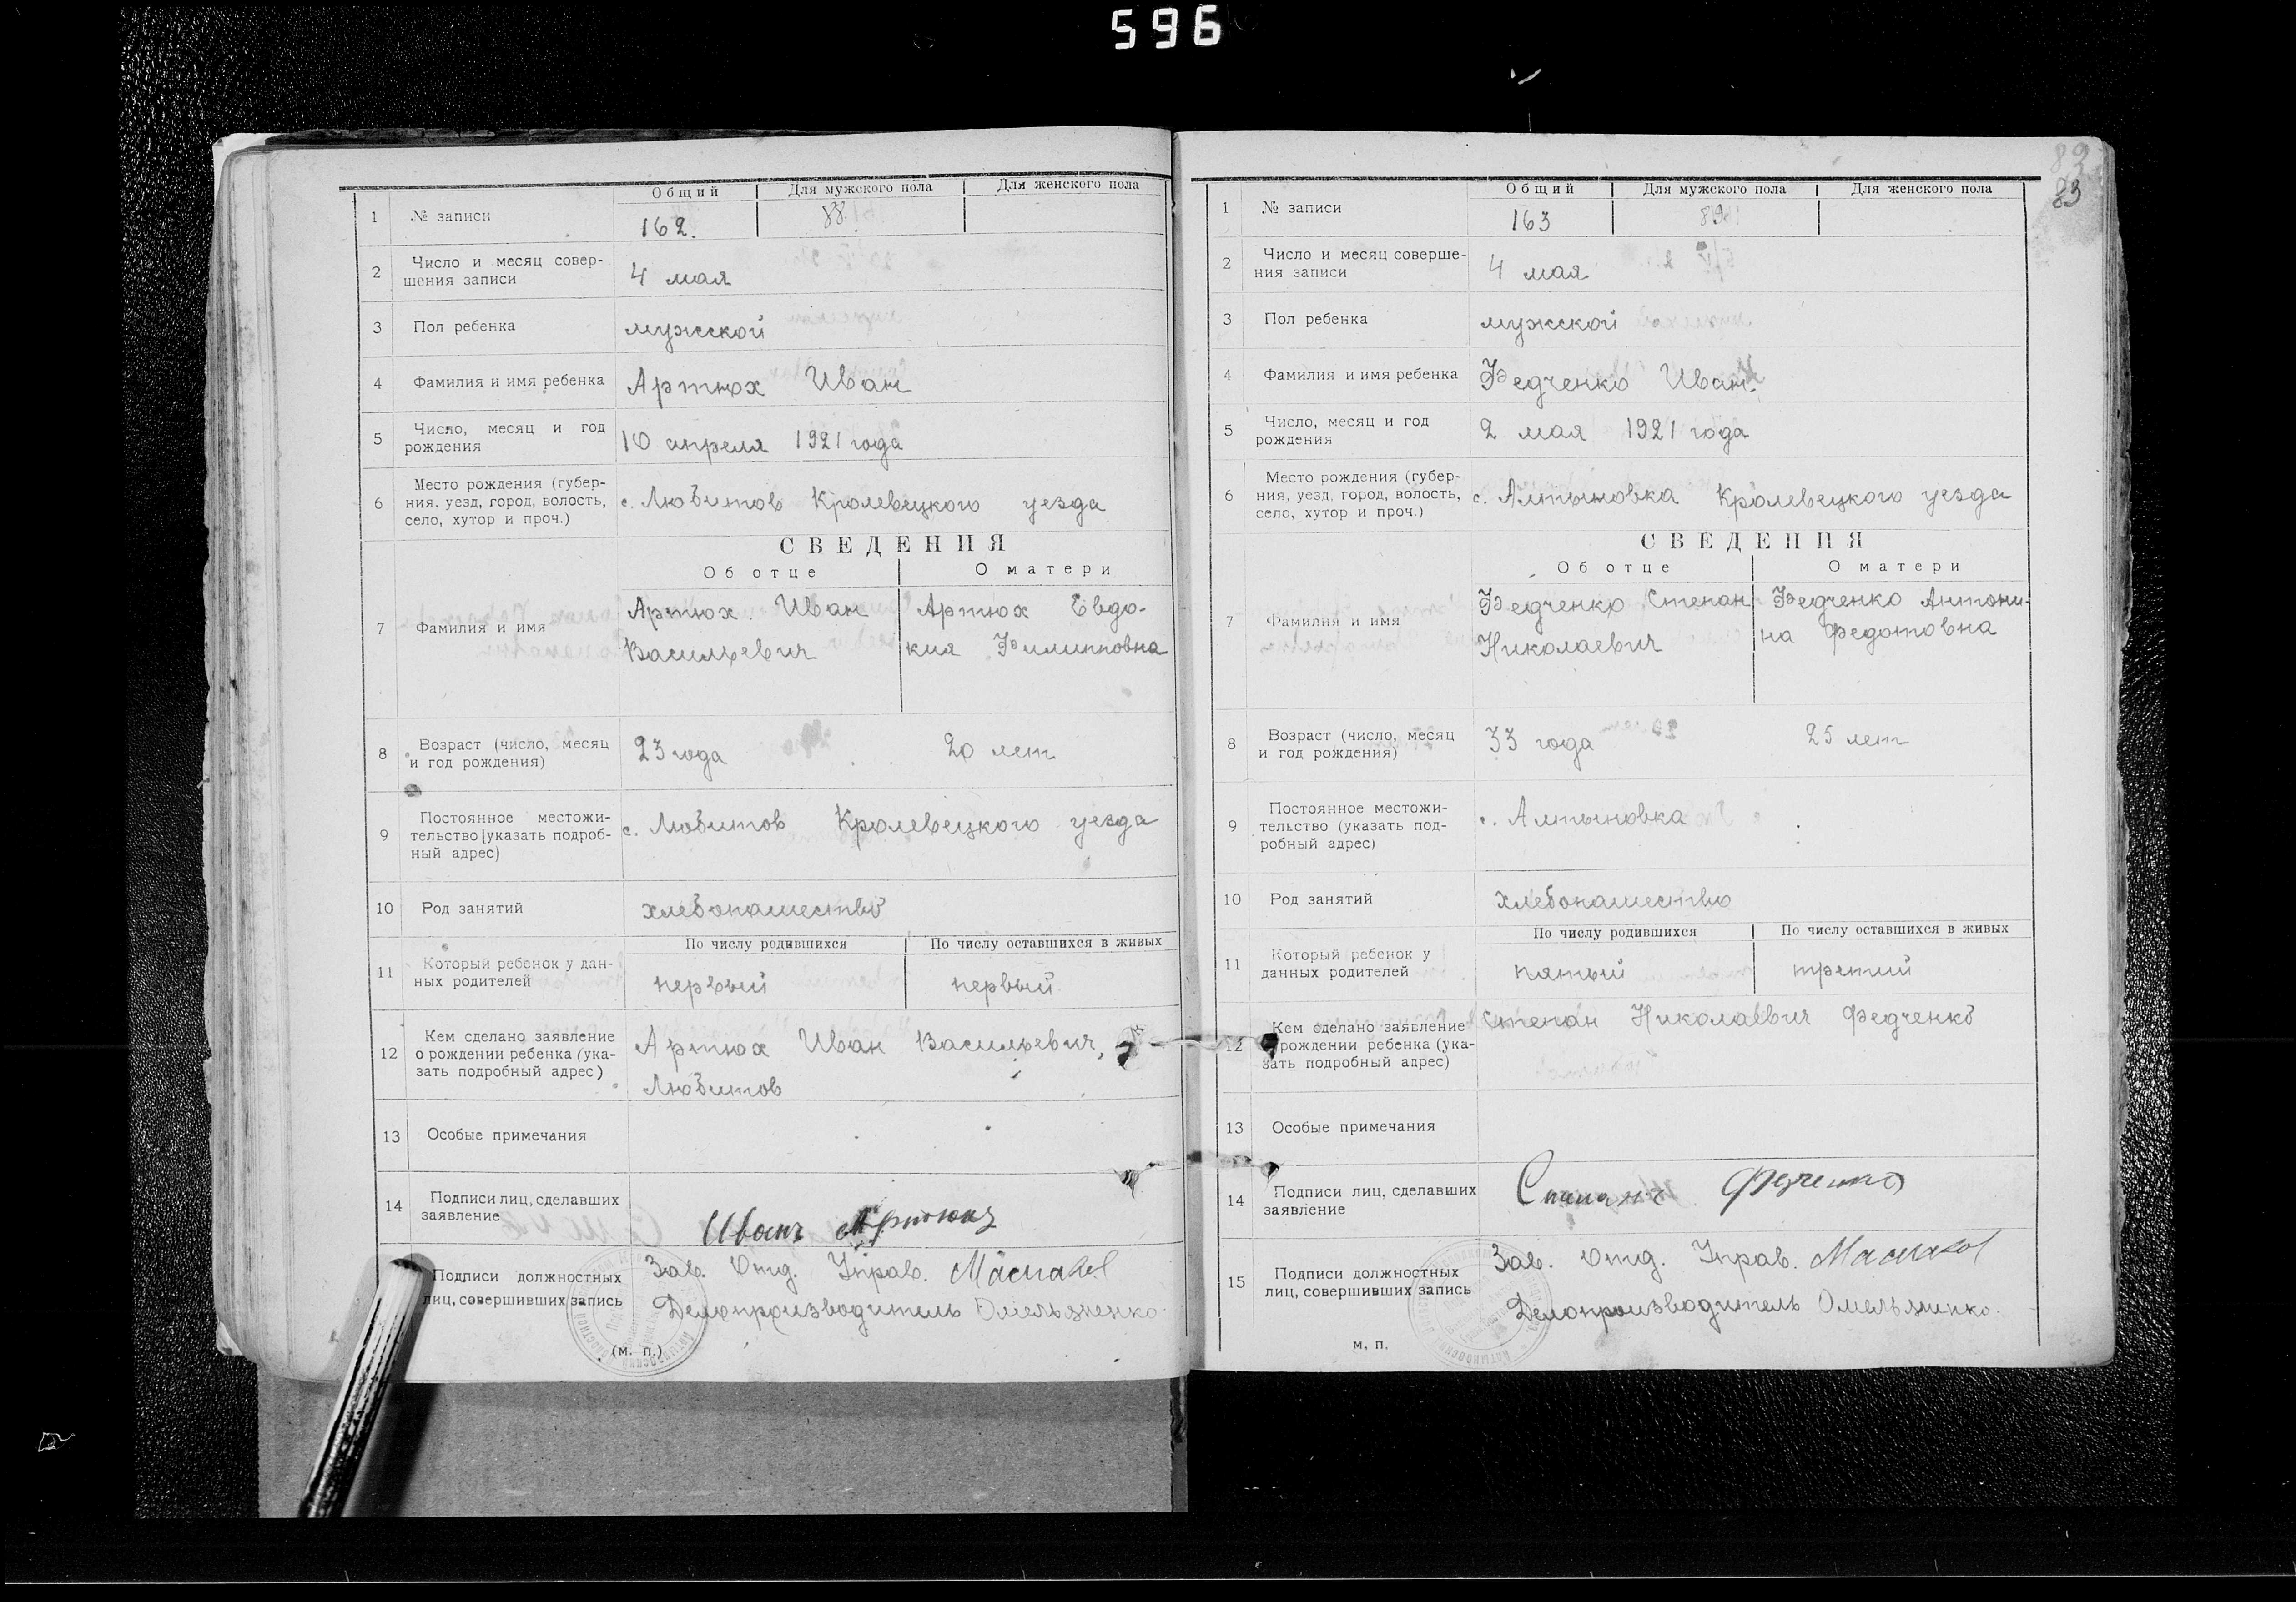 596
Общий Для мужского пола Для женского пола
1 № записи 162. 88.
2 Число и месяц совер-
шения записи 4 мая
3 Пол ребенка мужской
4 Фамилия и имя ребенка Артюх Иван
5 Число, месяц и год
рождения 10 апреля 1921 года
6 Место рождения (губер-
ния, уезд, город, волость,
село, хутор и проч.) с. Любитов Кролевецкого уезда
СВЕДЕНИЯ
Об отце О матери
7 Фамилия и имя
Артюх Иван
Васильевич
Артюх Евдо-
кия Филипповна
8 Возраст (число, месяц
и год рождения) 23 года 20 лет
9 Постоянное местожи-
тельство (указать подроб-
ный адрес) с. Любитов Кролевецкого уезда
10 Род занятий хлебопашество
По числу родившихся По числу оставшихся в живых
11 Который ребенок у дан-
ных родителей первый первый
12 Кем сделано заявление
о рождении ребенка (ука-
зать подробный адрес)
Артюх Иван Васильевич,
Любитов
13 Особые примечания
14 Подписи лиц, сделавших
заявление Иванъ Артюхъ
Подписи должностных
лиц, совершивших запись
Зав. Отд. Управ. Маслаков
Делопроизводитель Омельяненко
(м. п.)
83
Общий Для мужского пола Для женского пола
1 № записи 163 89
2 Число и месяц соверше-
ния записи 4 мая
3 Пол ребенка мужской
4 Фамилия и имя ребенка Федченко Иван.
5 Число, месяц и год
рождения 2 мая 1921 года
6 Место рождения (губер-
ния, уезд, город, волость,
село, хутор и проч.) с. Алтыновка Кролевецкого уезда
СВЕДЕНИЯ
Об отце О матери
7 Фамилия и имя
Федченко Степан
Николаевич
Федченко Антони-
на Федотовна
8 Возраст (число, месяц
и год рождения) 33 года 25 лет
9 Постоянное местожи-
тельство (указать под-
робный адрес) с. Алтыновка
10 Род занятий хлебопашество
По числу родившихся По числу оставшихся в живых
11 Который ребенок у
данных родителей пятый третий
12 Кем сделано заявление
рождении ребенка (ука-
зать подробный адрес)
Степан Николаевич Федченко
13 Особые примечания
14 Подписи лиц, сделавших
заявление Степанъ Федченко
15 Подписи должностных
лиц, совершивших запись
Зав. Отд. Управ. Маслаков
Делопроизводитель Омельяненко.
м. п.